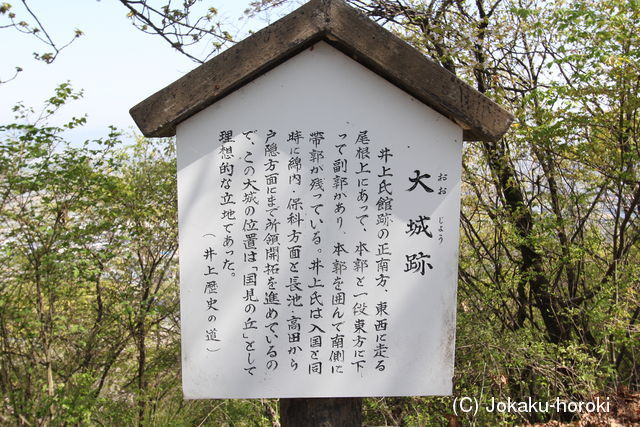 大城跡
おおじょう
井上氏館跡の正南方、東西に走る
尾根上にあって、本郭と一段東方に下
って副郭があり、本郭を囲んで南側に
帯郭が残っている。井上氏は入国と同
時に綿内、保科方面と長池、高田から
戸隠方面にまで所領開拓を進めているの
で、この大城の位置は「国見の丘」として
理想的な立地であった。
（井上歴史の道）
(C) Jokaku-horoki